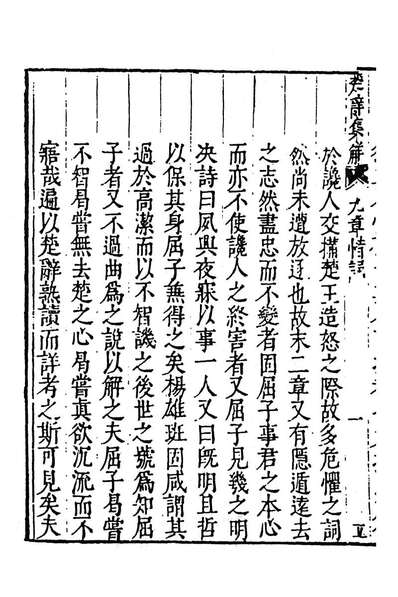 楚辭集解 九章惜誦 一 五
於讒人交搆楚王造怒之際故多危懼之詞
然尚未遭放逐也故末二章又有隱遁遠去
之志然盡忠而不變者固屈子事君之本心
而亦不使讒人之終害者又屈子見幾之明
央詩曰夙興夜寐以事一人又曰旣明且哲
以保其身屈子無得之矣楊雄班固咸謂其
過於高潔而以不智譏之後世之號爲知屈
子者又不過曲爲之說以解之夫屈子曷嘗
不智曷嘗無去楚之心曷嘗真欲沉流而不
寤哉遍以楚辭熟讀而詳考之斯可見矣夫